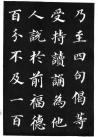 乃至四句偈等
受持讀誦為他
人說於前福德
百分不及一百